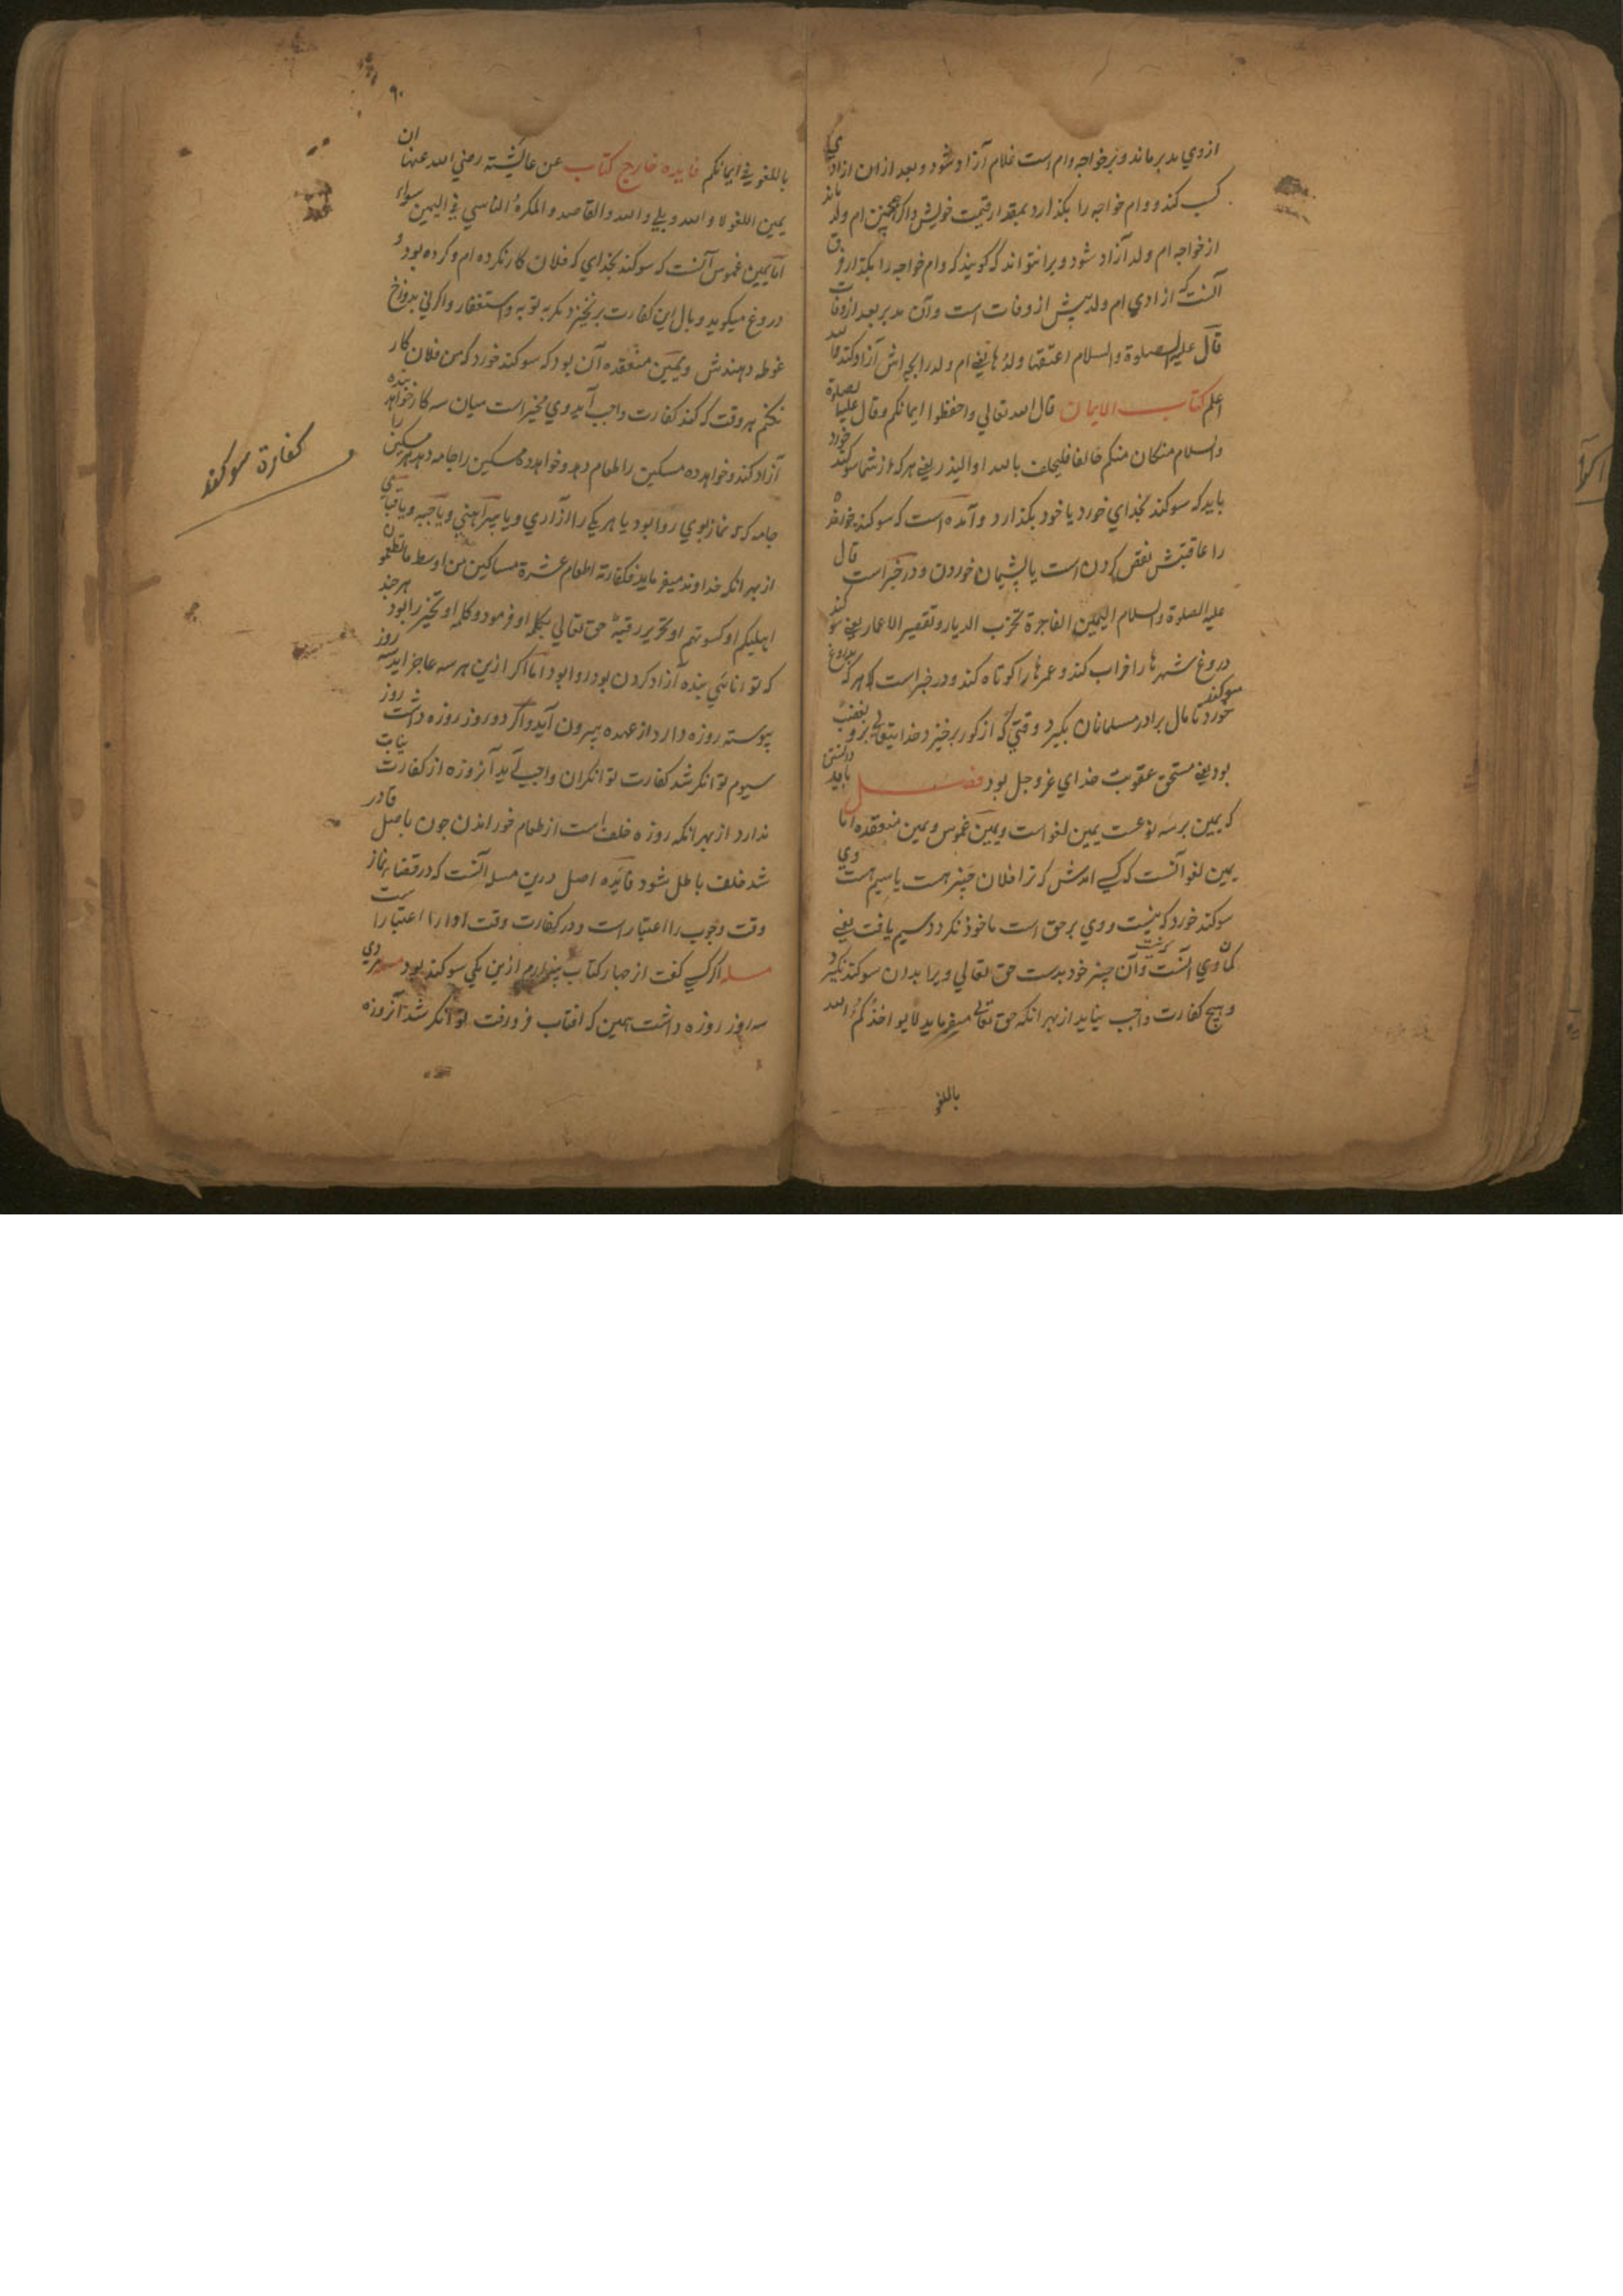 از وي مدبر ماند و بر خواجه وام است غلام آزاد شود و بعد ازان ازادي
كسب كند و وام خواجه را بكذارد بمقدار قيمت خويش و اكر همچنين ام ولد ماند
از خواجه ام ولد آزاد شود و برا نتواند كه كويند كه وام خواجه را بكذار و فرق
آنست كه ازادي ام ولد پيش از وفات است و آن مدبر بعد از وفات
قال عليه الصلوة والسلام اعتقها ولدها يعني ام ولد را بچه اش آزاد كند
اعلم كتاب الايمان قال الله تعالي واحفظوا ايمانكم وقال عليه الصلوة
والسلام من كان منكم حالفا فليحلف بالله او اليذر يعني هركه از شما سوكند خورد
بايد كه سوكند بخداي خورد يا خود بكذارد و آمده است كه سوكند خوردن
را عاقبتش نقض كردن است يا پشيمان خوردن و در خبر است قال
عليه الصلوة والسلام اليمين الفاجرة تخرب الديار و تقصير الاعمار يعني سوكند
دروغ شهرها را خراب كند و عمرها را كوتاه كند و در خبر است كه هر كه بدروغ سوكند
خورد تا مال برادر مسلمانان بكيرد وقتي كه از كور برخيزد خدايتعالي برو بغضب
بود يعني مستحق عقوبت خداي عز و جل بود فصل بايد دانستن
كه يمين بر سه نوعست يمين لغو است و يمين غموس و يمين منعقده اما
يمين لغو آنست كه كسي امدش كه ترا فلان چيز هست يا سيم هست وي
سوكند خورد كه نيست و وي بر حق است ماخوذ نكردد و سيم يافت يعني
كمان وي آنست و آن چيز خود بدست حق تعالي ويرا بدان سوكند نكيرد
و هيچ كفارت واجب نيايد از بهر انكه حق تعالي ميفرمايد لا يواخذكم الله
باللغو
٩٠
باللغو في ايمانكم فايده خارج كتاب عن عايشته رضي الله عنها ان
يمين اللغو لا والله و بلي والله والقاصد والمكره الناسي في اليمين سواء
اما يمين غموس آنست كه سوكند بخداي كه فلان كار نكرده ام و كرده بود و
دروغ ميكويد وبال اين كفارت بر نخيزد مكر به توبه و استغفار و اكر ني بدوزخ
غوطه دهندش و يمين منعقده آن بود كه سوكند خورد كه من فلان كار
نكنم هر وقت كه كند كفارت واجب آيد وي مخير است ميان سه كار خواهد بنده
آزاد كند و خواهد ده مسكين را طعام دهد و خواهد ده مسكين را جامه دهد هر مسكين را
جامه كه نماز بوي روا بود يا هر يكي را ازاري و يا پيراهني و يا جبه و يا قباي
از بهر انكه خداوند ميفرمايد فكفارته اطعام عشرة مساكين من اوسط ما تطعمون
اهليكم او كسوتهم او تحرير رقبة حق تعالي بكلمه او فرمود و كلمه او تخير را بود هر چند
كه توانائي بنده آزاد كردن بود روا بود اما اكر ازين هر سه عاجز ايد سه روز
پيوسته روزه دارد از عهده بيرون آيد و اكر دو روز روزه داشت روز
سيوم توانكر شد كفارت توانكران واجب آيد آن روزه از كفارت نيابت
ندارد از بهر انكه روزه خلف است از طعام خوراندن چون با صل قادر
شد خلف باطل شود فايده اصل درين مسله آنست كه در قضاء نماز
وقت وجوب را اعتبار است و در كفارت وقت ادا را اعتبار است
مسله اكر كسي كفت از چهار كتاب بيزارم ازين يكي سوكند بود مسله مردي
سه روز روزه داشت همين كه افتاب فرو رفت توانكر شد آن روزه
كفارة سوكند